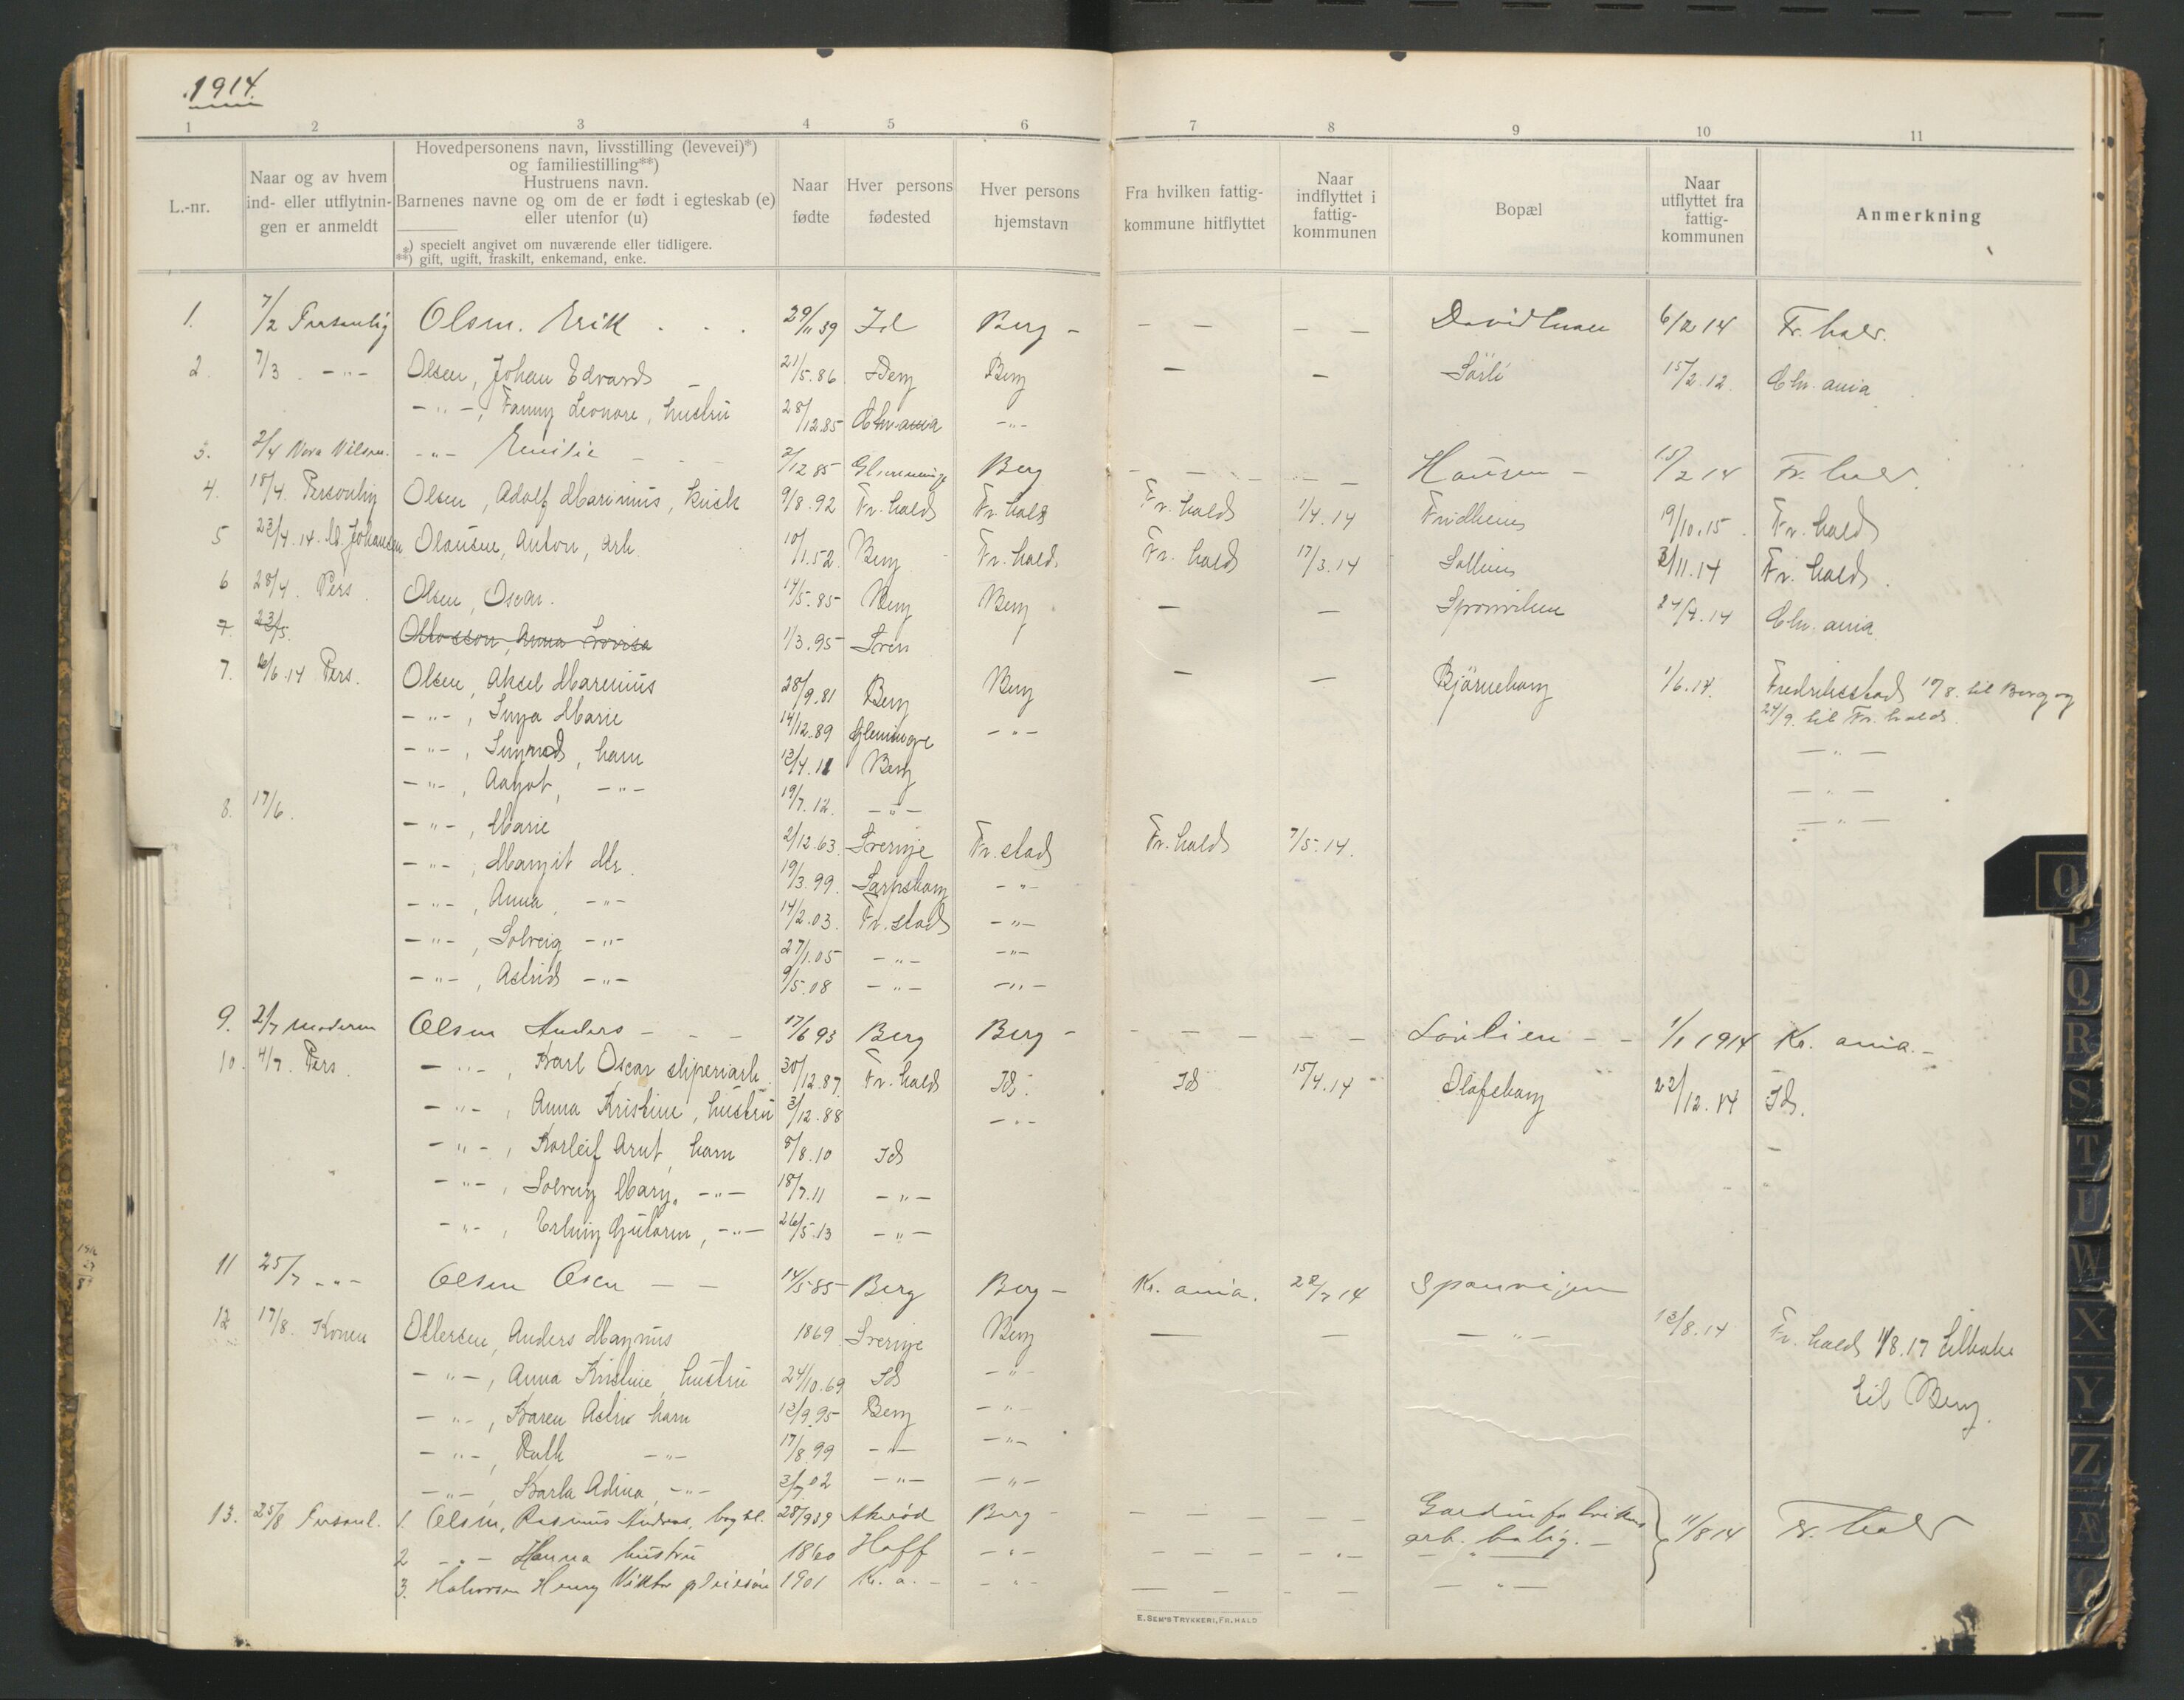 1914.
1 2 3 4 5 6 7 8 9 10 11
L.-nr.
Naar og av hvem
ind- eller utflytnin-
gen er anmeldt
Hovedpersonens navn, livsstilling (levevei)*)
og familiestilling**)
Hustruens navn.
Barnenes navne og om de er født i egteskab (e)
eller utenfor (u)
*) specielt angivet om nuværende eller tidligere.
**) gift, ugift, fraskilt, enkemand, enke.
Naar
fødte
Hver persons
fødested
Hver persons
hjemstavn
Fra hvilken fattig-
kommune hitflyttet
Naar
indflyttet i
fattig-
kommunen
Bopæl
Naar
utflyttet fra
fattig-
kommunen
Anmerkning
1. 7/2 Personlig Olsen. Erik . . . 29/11 39 Id Berg - - - - - 6/2 14 Fr. hald.
2. 7/3 . -"- Olsen, Johan Edvard - 21/5.86. Berg Berg - - Sörli 15/2.12. Chr.ania
-"-, Fanny Leonore, hustru 28/12.85 Chr.ania -"-
3. 2/4 Nora Nilsen. -"- Emilie - - - 2/12 85 Glemminge Berg - - - - - Hansen - 15/2 14 Fr. hald.
4. 18/4. Personlig Olsen, Adolf Marinius, kusk 9/8.92 Fr. hald Fr. hald Fr. hald 1/4.14 Fridheim 19/10.15. Fr. hald
5 23/4.14. M. Johansen Olausen, Anton, arb. 10/1.52. Berg Fr. hald. Fr. hald 17/3.14 Solheim 3/11.14 Fr. hald.
6 28/4. Pers. Olsen, Oscar. 14/5.85 Berg Berg - - 24/4.14 Chr.ania.
7. 23/5. Ottosson, Anna Lovisa 1/3.95 Sven
7. 6/6.14 Pers. Olsen, Aksel Marenius 28/9.81 Berg Berg - - Björneborg 1/6.14. Fredriksstad 10/8. til Berg og
-"-, Inga Marie 14/12.89 Gleminge -"- 24/9. til Fr. hald.
-"-, Sigmod, barn 12/4.11 Berg -"-
-"-, Aagot, -"- 19/7.12. -"- -"-
8. 17/6. -"-, Marie 2/12.63. Sverige Fr. stad Fr. hald 7/5.14. -"-
-"-, Margit Mr. 19/3.99. Sarpsborg -"-
-"-, Anna, -"- 14/2.03. Fr. stad -"-
-"-, Solveig -"- 27/1.05 -"- -"-
-"-, Astrid -"- 9/5.08 -"- -"-
9. 2/7 moderen Olsen Anders - - - 17/6 93 Berg Berg - - - - - - Lövlien - - 1/1 1914 Kr. ania. -
10. 4/7. Pers. -"-, Karl Oscar sliperiarb. 30/12.87. Fr. hald Id. Id 15/4.14 Olafsborg 22/12.14 Id.
-"-, Anna Kristine, hustru 3/12.88 -"-
-"-, Korleif Arnt, barn 8/8.10 Id -
-"-, Solveig Mary, -"- 18/7.11 -"-
-"-, Erling Gutorm, -"- 26/5.13 -"-
11 25/7 -"- Olsen Oscar - - 14/5 85 Berg Berg - Kr. ania. 22/7 14 Sponvigen
12 17/8. Konen Ottersen, Anders Magnus 1869 Sverige Berg - - -"- 13/8.14 Fr. hald 1/8.17 tilbake
-"-, Anna Kristine, hustru 24/10.69 Id -"- til Berg.
-"-, Karen Astri barn 12/9.95 Berg -"-
-"-, Ruth -"- 17/8.99 -"- -"-
-"-, Karla Adina, -"- 3/7.02 -"- -"-
13. 25/8 Personl. 1. Olsen, Rasmus Andreas, 28/9 39 Berg - - - - - Gardinfabrikens 11/8 14 Fr. hald
2 -"- Hanna hustru 1860 Hoff -"- - - - -"- arb. bolig. -
3. Halvorsen Henry Viktor pleiesön 1901 Kr. a. - -"- - - - - -"-
E. SEM'S TRYKKERI, FR.HALD
O
P
Q
R
S
T
U
W
X
Y
Z
Æ
Ø